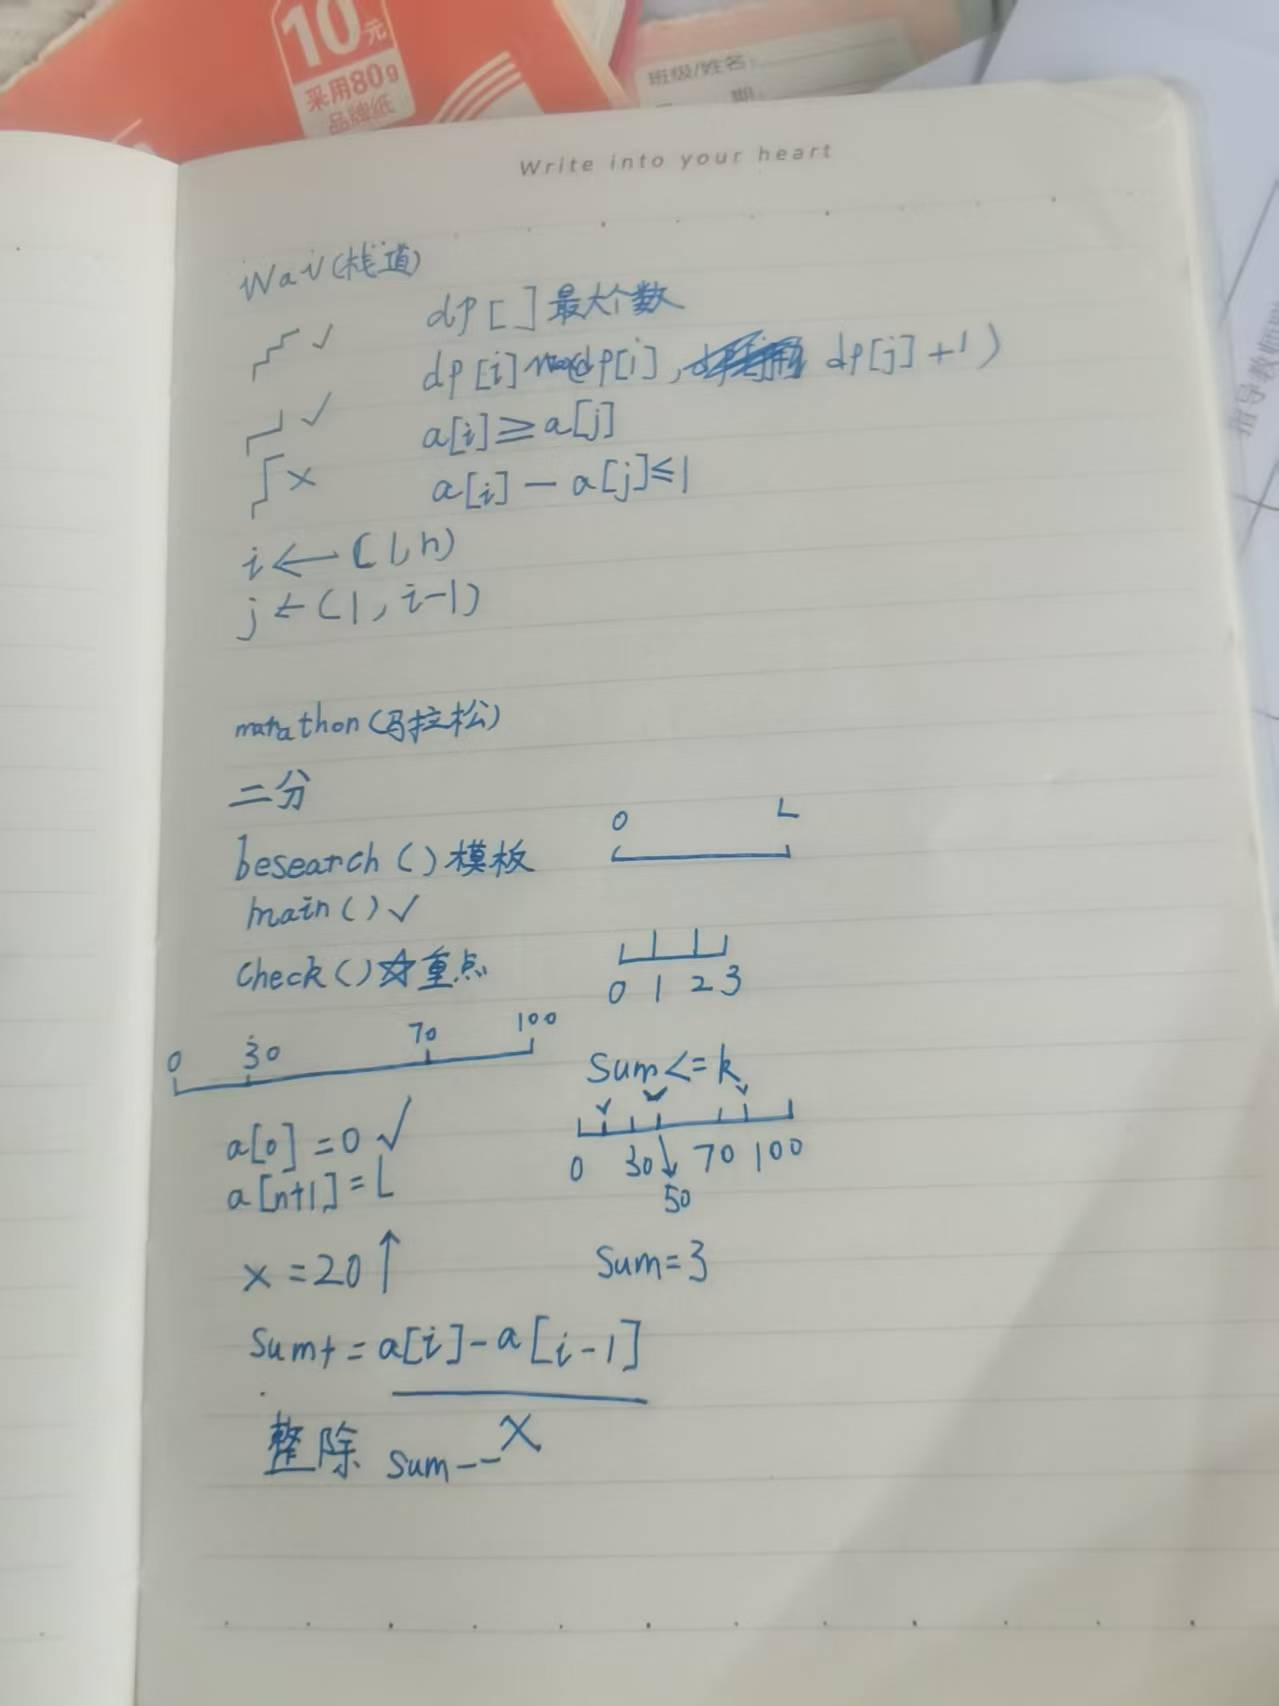 10元
采用80g
品牌纸
班级/姓名:
期:
Write into your heart
指导教师
way(栈道)
dp[ ]最大个数
✓
dp[i] max(dp[i], dp[j]+1)
✓
a[i]≥a[j]
×
a[i]-a[j]≤1
i←(1,n)
j←(1,i-1)
marathon(马拉松)
二分
0 L
besearch()模板
main()✓
check()☆重点
0 1 2 3
0 30 70 100
sum<=k
a[0]=0 ✓
0 30 70 100
50
a[n+1]=L
x=20↑
sum=3
sum+=a[i]-a[i-1]
x
整除 sum--